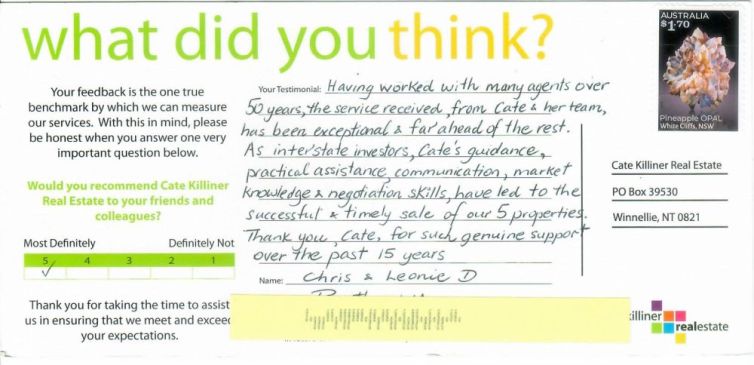 what did you think?
AUSTRALIA
$1.70
Pineapple OPAL
White Cliffs, NSW
Your feedback is the one true
benchmark by which we can measure
our services. With this in mind, please
be honest when you answer one very
important question below.
Would you recommend Cate Killiner
Real Estate to your friends and
colleagues?
Most Definitely Definitely Not
5 4 3 2 1
✓
Thank you for taking the time to assist
us in ensuring that we meet and exceed
your expectations.
Your Testimonial: Having worked with many agents over
50 years, the service received, from Cate & her team,
has been exceptional & far ahead of the rest.
As interstate investors, Cate's guidance,
practical assistance, communication, market
knowledge & negotiation skills, have led to the
successful & timely sale of our 5 properties.
Thank you, Cate, for such genuine support
over the past 15 years
Name: Chris & Leonie D
Cate Killiner Real Estate
PO Box 39530
Winnellie, NT 0821
killiner
realestate